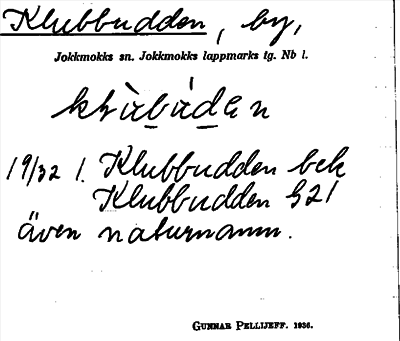 Klubbudden, by,
Jokkmokks sn. Jokkmokks lappmarks tg. Nb l.
19/32 1. Klubbudden bek
Klubbudden G21
även naturnamn.
GUNNAR PELLIJEFF. 1936.